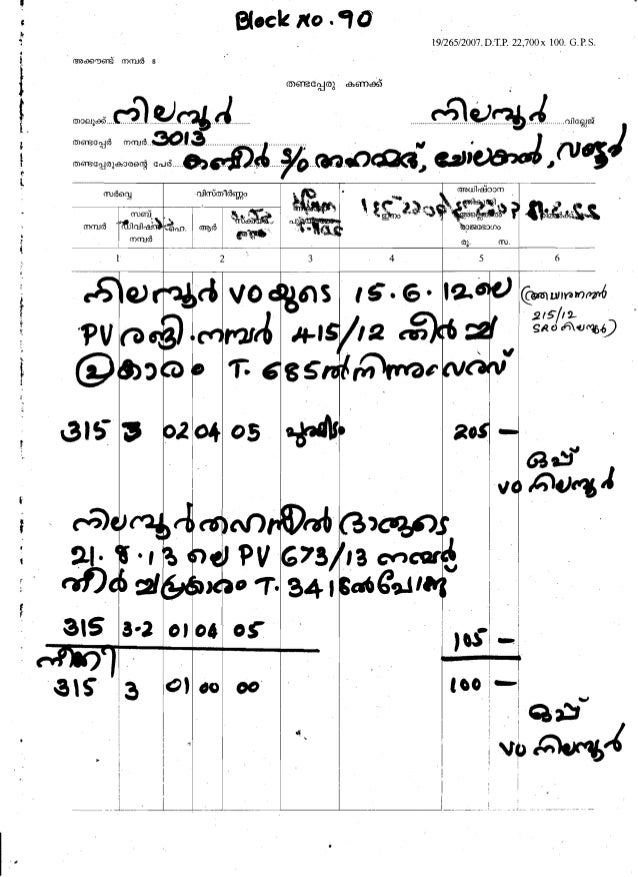 Block No. 90
19/265/2007. D.T.P. 22,700 x 100. G.P.S.
അക്കൗണ്ട് നമ്പർ 8
തണ്ടപ്പേരു കണക്ക്
താലൂക്ക് നിലമ്പൂർ നിലമ്പൂർ വില്ലേജ്
തണ്ടപ്പേർ നമ്പർ 3013
തണ്ടപ്പേരുകാരന്റെ പേർ S/o അഹമ്മദ്, ചോലക്കൽ, വണ്ടൂർ
സർവ്വെ വിസ്തീർണ്ണം അധിഷ്ഠാന
നമ്പർ സബ് ഡിവിഷൻ നമ്പർ ഹെ. ആർ ഇനം രാജഭാഗം
രൂ. സ.
1 2 3 4 5 6
നിലമ്പൂർ VO യുടെ 15.6.12 ലെ
PV നമ്പർ 415/12 തീർച്ച
പ്രകാരം T. 685 ൽ നിന്നും വരവ്
215/12
SRO നിലമ്പൂർ)
315 3 02 04 05 പുരയിടം 205 —
ഒപ്പ്
VO നിലമ്പൂർ
നിലമ്പൂർ തഹസീൽദാരുടെ
21.8.13 ലെ PV 673/13 നമ്പർ
തീർച്ചപ്രകാരം T. 3416 ൽ പോക്ക്
315 3-2 01 04 05 105 —
നീക്കി
315 3 01 00 00 100 —
ഒപ്പ്
VO നിലമ്പൂർ